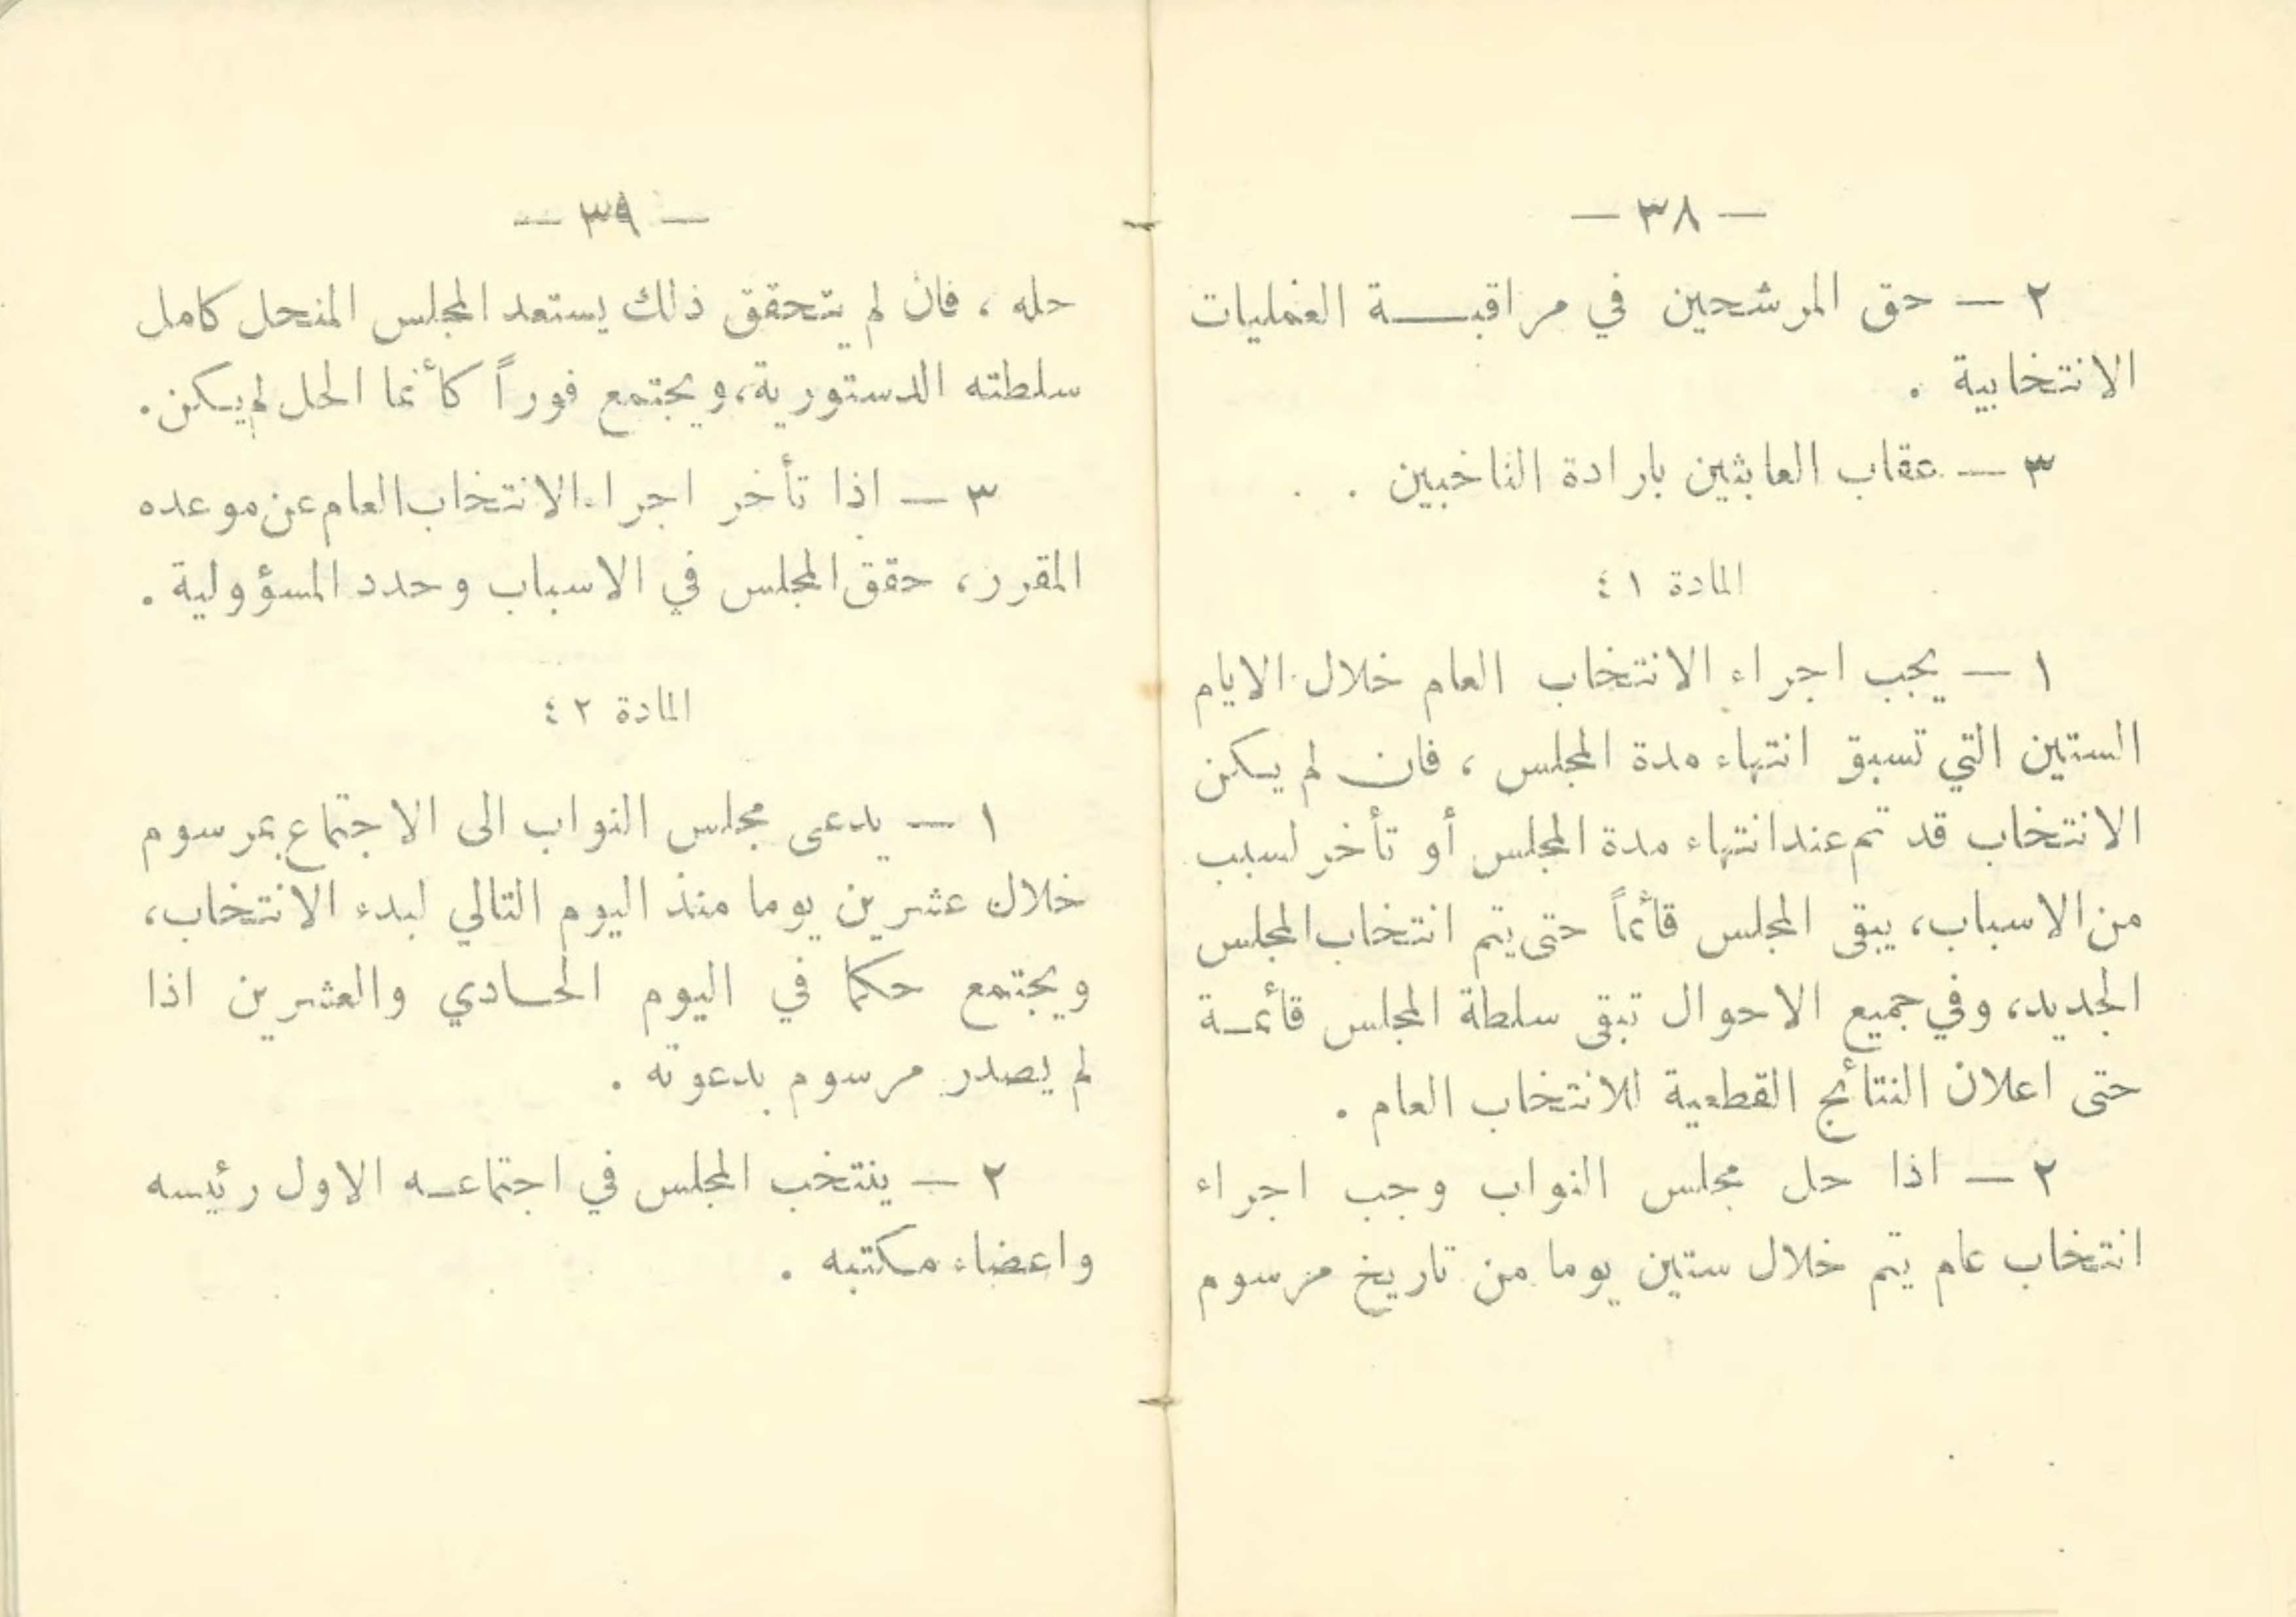 — ٣٨ —
٢ — حق المرشحين في مراقبة العمليات
الانتخابية .
٣ — عقاب العابثين بارادة الناخبين .
المادة ٤١
١ — يجب اجراء الانتخاب العام خلال الايام
الستين التي تسبق انتهاء مدة المجلس ، فان لم يكن
الانتخاب قد تم عند انتهاء مدة المجلس أو تأخر لسبب
من الاسباب، يبقى المجلس قائماً حتى يتم انتخاب المجلس
الجديد، وفي جميع الاحوال تبقى سلطة المجلس قائمة
حتى اعلان النتائج القطعية للانتخاب العام .
٢ — اذا حل مجلس النواب وجب اجراء
انتخاب عام يتم خلال ستين يوما من تاريخ مرسوم
— ٣٩ —
حله ، فان لم يتحقق ذلك يستعد المجلس المنحل كامل
سلطته الدستورية، ويجتمع فوراً كأنما الحل لم يكن.
٣ — اذا تأخر اجراء الانتخاب العام عن موعده
المقرر، حقق المجلس في الاسباب وحدد المسؤولية .
المادة ٤٢
١ — يدعى مجلس النواب الى الاجتماع بمرسوم
خلال عشرين يوما منذ اليوم التالي لبدء الانتخاب،
ويجتمع حكما في اليوم الحادي والعشرين اذا
لم يصدر مرسوم بدعوته .
٢ — ينتخب المجلس في اجتماعه الاول رئيسه
واعضاء مكتبه .